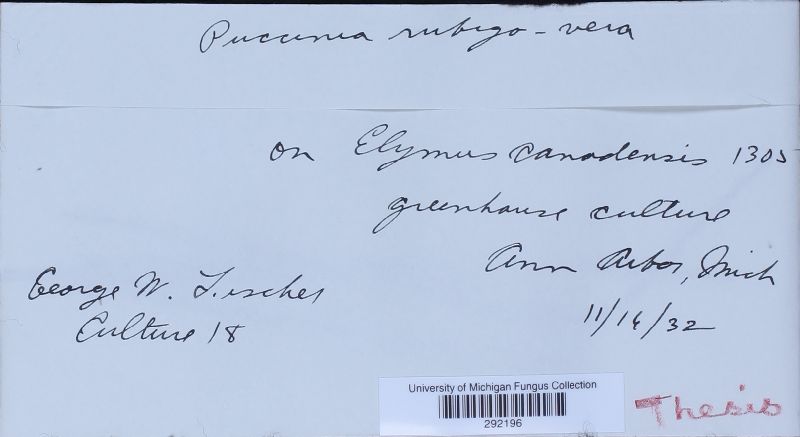 Puccinia rubigo-vera
on Elymus canadensis 1305
greenhouse culture
Ann Arbor, Mich
George W. Fischer
Culture 18
11/16/32
University of Michigan Fungus Collection
292196
Thesis